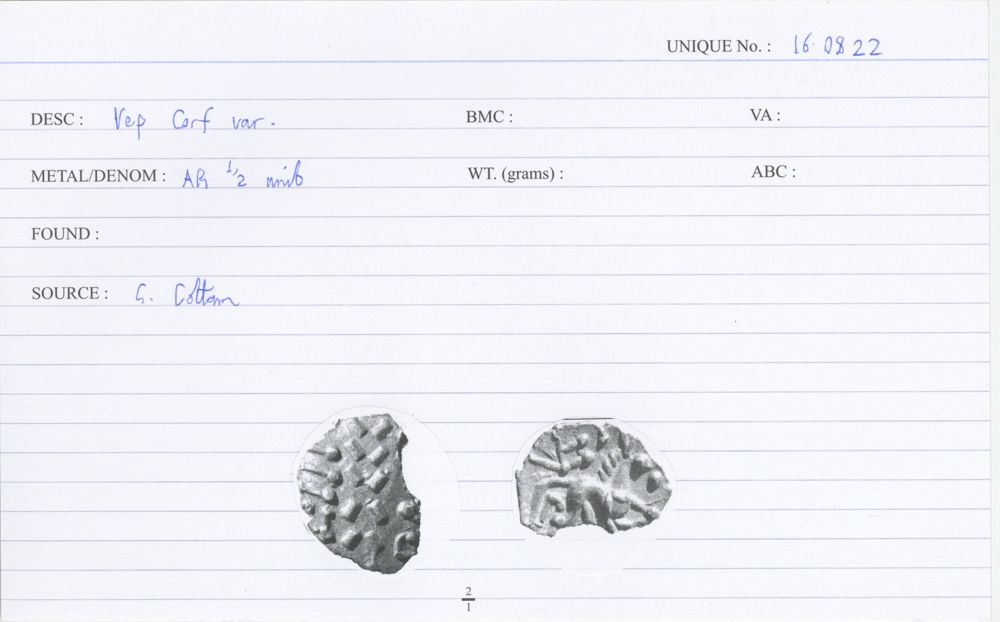 UNIQUE No. : 16.0822
DESC : Vep Corf var. BMC : VA :
METAL/DENOM : AR 1/2 unit WT. (grams) : ABC :
FOUND :
SOURCE : G. Cottam
VEP
2
1